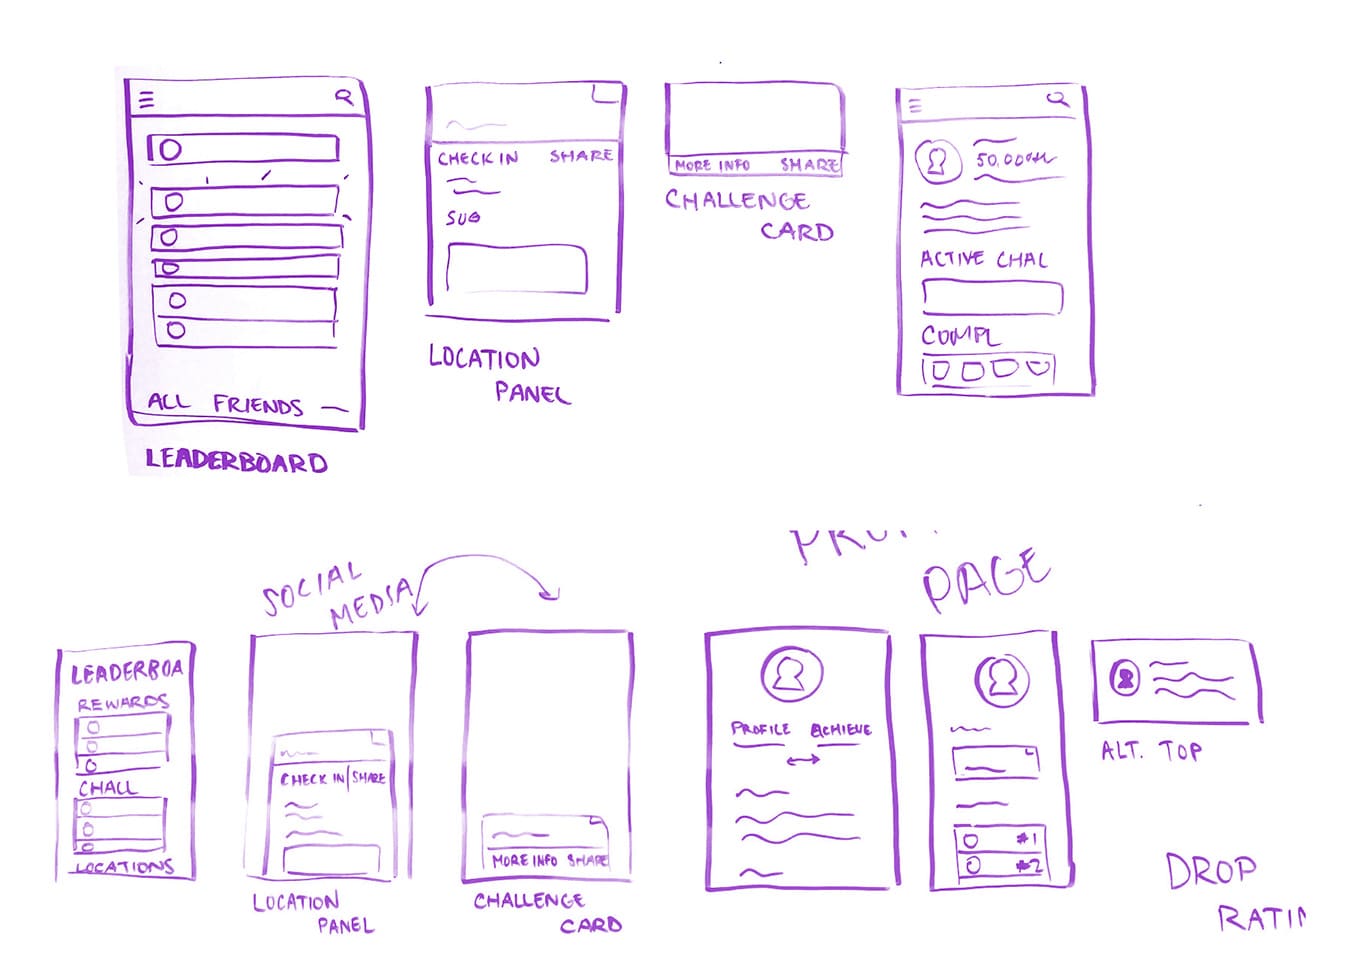 CHECK IN SHARE
SUB
ALL FRIENDS
LEADERBOARD
LOCATION
PANEL
MORE INFO SHARE
CHALLENGE
CARD
ACTIVE CHAL
COMPL
SOCIAL
MEDIA
PAGE
LEADERBOA
REWARDS
CHALL
LOCATIONS
CHECK IN SHARE
LOCATION
PANEL
MORE INFO SHARE
CHALLENGE
CARD
PROFILE ACHIEVE
#1
#2
ALT. TOP
DROP
RATIN